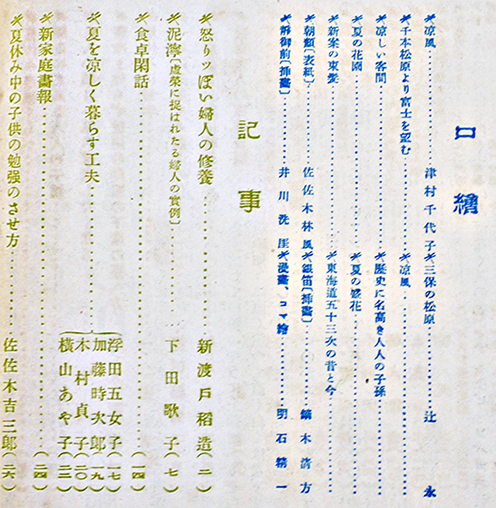 口繪
凉風……津村千代子
千本松原より富士を望む
凉しい客間
夏の花園
新案の束髮
朝顏〔表紙〕……佐佐木林風
靜御前〔挿畫〕……井川洗厓
三保の松原……辻永
凉風
歷史に名高き人人の子孫
夏の盛花
東海道五十三次の昔と今
銀笛〔挿畫〕……鏑木淸方
漫畫、コマ繪……明石精一
記事
怒りッぽい婦人の修養……新渡戶稻造(二)
泥濘〔虛榮に捉はれたる婦人の實例〕……下田歌子(七)
食卓閑話……(一四)
夏を凉しく暮らす工夫……
浮田五女子(一七)
加藤時次郞(一九)
木村貞子(二〇)
橫山あや子(二二)
新家庭畫報……(二四)
夏休み中の子供の勉强のさせ方……佐佐木吉三郞(二六)